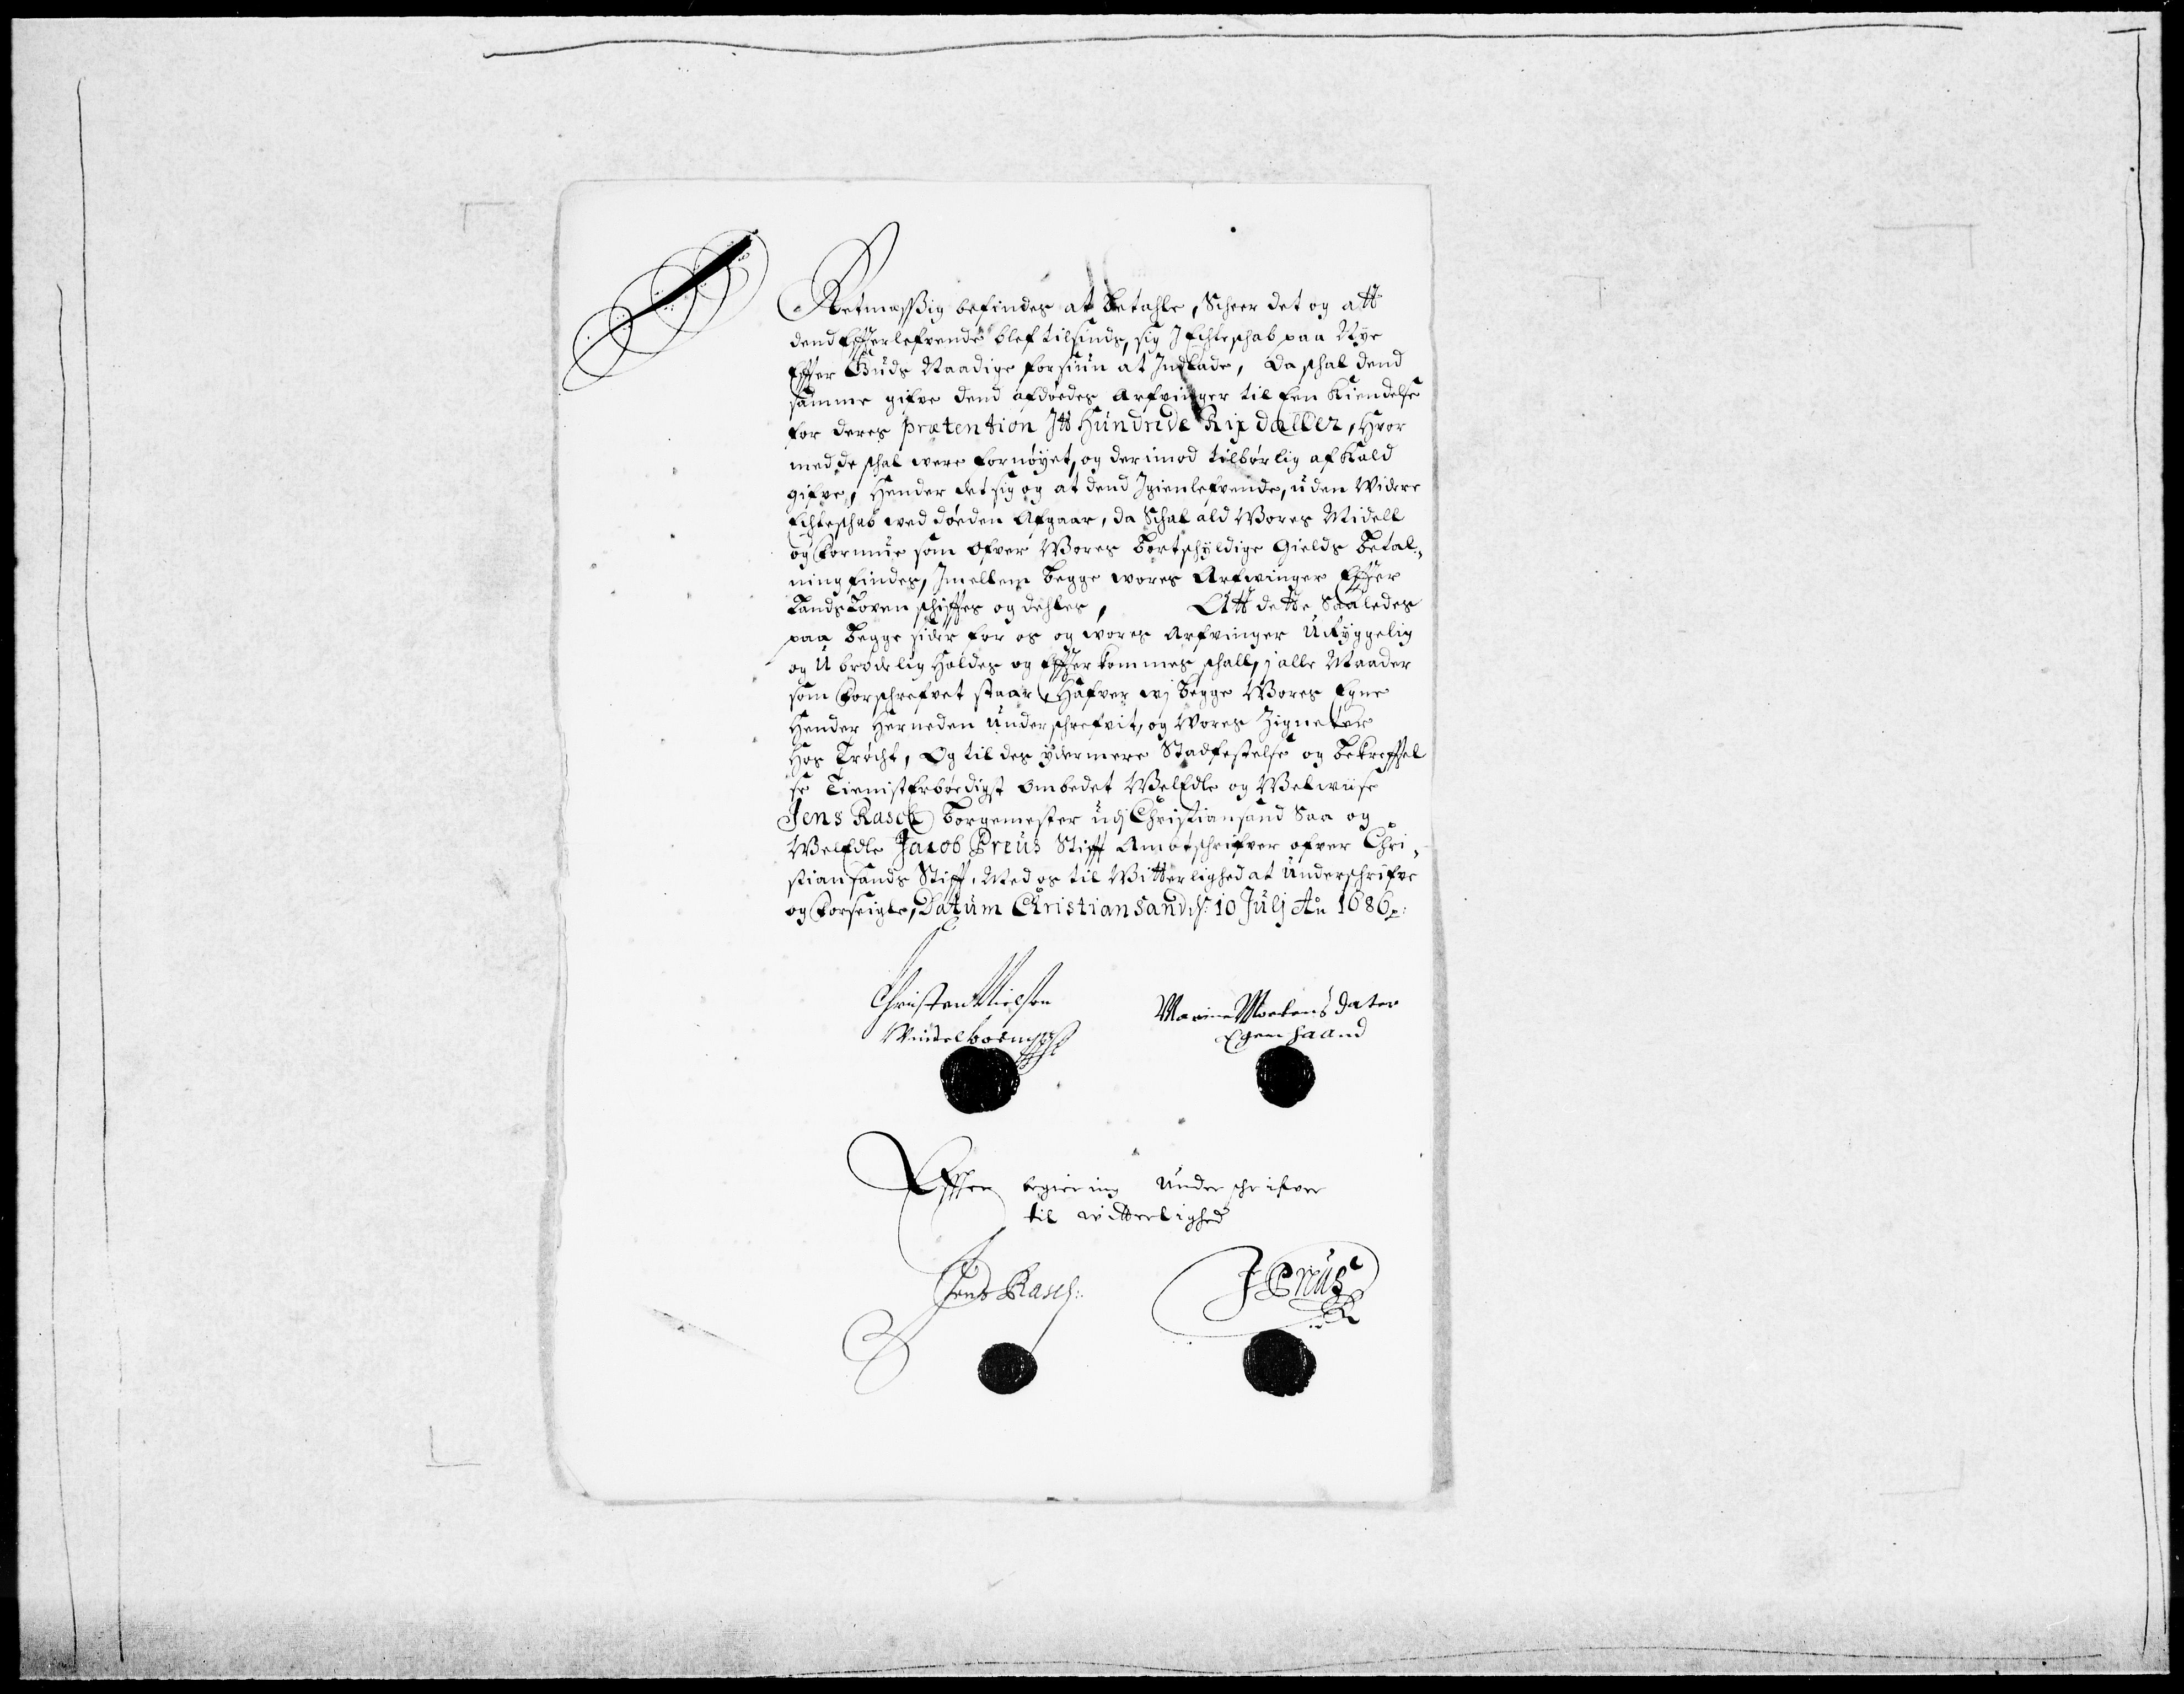 Retmæssig befindes at betahle, Scheer det og att
dend Effterlefvende blef tilsinds, sig J Echteschab paa Nye
Effter Guds Naadige forsiun at Indlade, da schal dend
samme gifve dend afdødes Arfvinger til Een Kiendelse
for deres prætention Jtt Hundrede Rix daller, Hvor
med de schal were fornøyet, og derimod tilbørlig afkald
gifve, Hender det sig og at dend Igienlefvende, uden Widere
Echteschab wed døeden Afgaar, da Schal ald Wores Midell
og formue som ofver Wores bortschyldige Gields betal„
ning findes, Jmellem begge wores Arfvinger Effter
Lands Loven schifftes og dehles, Att dette Saaledes
paa begge sider for os og wores Arfvinger Uryggelig
og Ubrødelig Holdes og Effterkommes schall, j alle Maader
som forschrefvet staar, Hafver wj begge Wores Egne
Hender Herneden underschrefvit, og Wores Zigneter
Hos Trøcht, Og til des ydermere Stadfestelse og bekrefftel
se Tienisterbøedigst ombedet WelEdle og Welwiise
Jens Rasch Borgemester udj Christiansand Saa og
WelEdle Jacob Preus Stifft Ambtschrifver ofver Chri„
stiansands Stifft, Med os til Witterlighed at Underschrifve
og forseigle, Datum Christiansand d: 10 Julj Ao 1686
Christen Nielsen

Marine Mortens dater
Egen haand
Effter begiering underschrifver
til witterlighed
Jens Rasch
J Preus